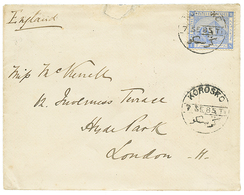 England
Miss McNeill
12 Inverness Terrace
Hyde Park
London W
KOROSKO
7 SE 85